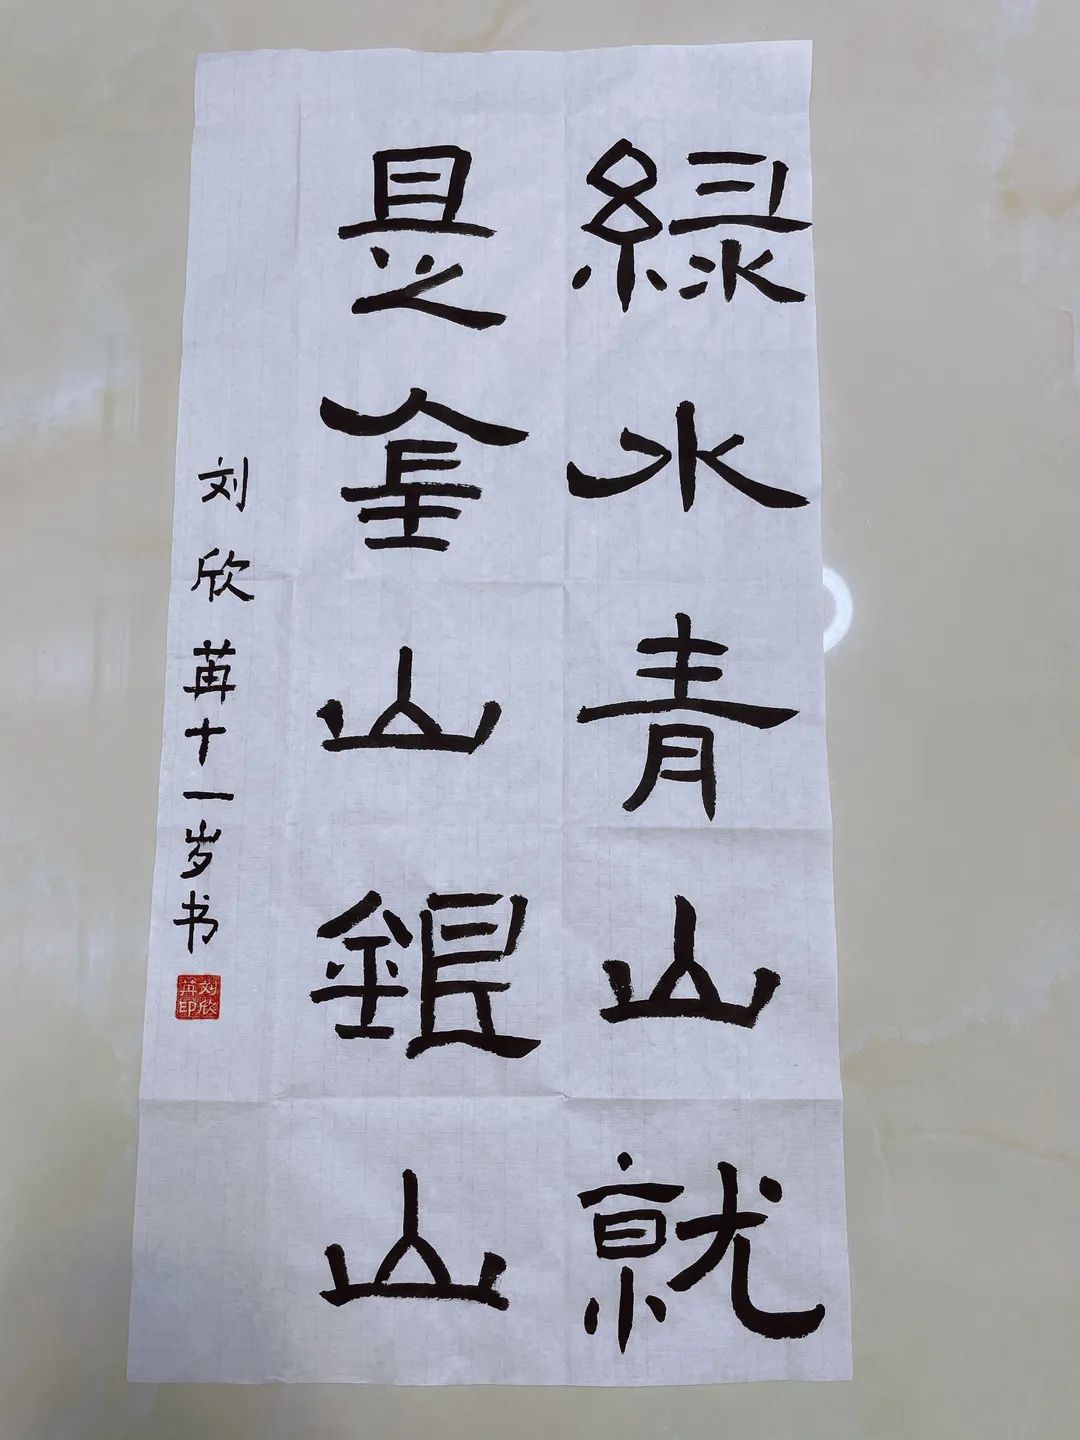 綠水青山就
是金山銀山
刘欣苒十一岁书
刘欣苒印